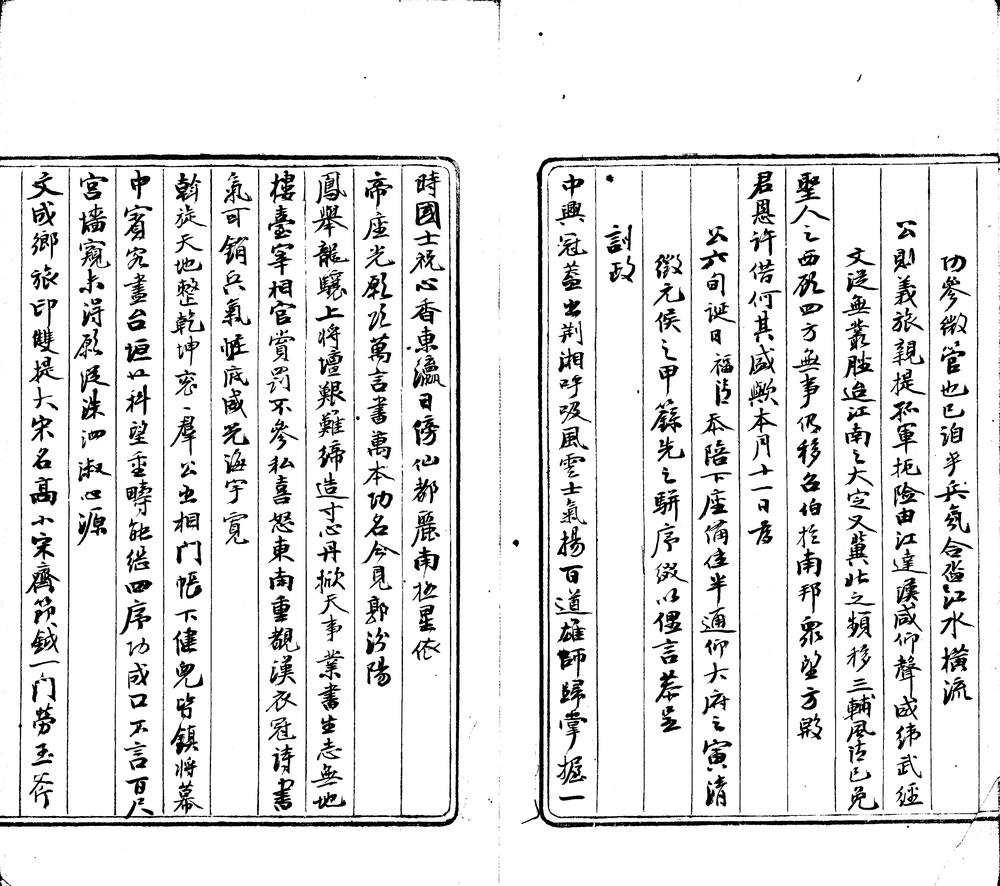 功參微管也已洎乎兵氛合沓江水橫流
公則義旅親提孤軍扼險由江達漢咸仰聲威緯武經
文從無叢脞迨江南之大定又冀北之頻移三輔風清已免
聖人之西顧四方無事仍移召伯於南邦眾望方殷
君恩許借何其盛歟本月十一日為
公六旬誕日福清忝陪下座備位半通仰大府之寅清
徵元侯之甲籙先之駢序綴以俚言恭呈
訓政
中興冠蓋出荆湘呼吸風雲士氣揚百道雄師歸掌握一
時國士祝心香東瀛日傍仙都麗南極星依
帝座光願頌萬言書萬本功名今見郭汾陽
鳳舉龍驤上將壇艱難締造寸心丹掀天事業書生志無地
樓臺宰相官賞罰不參私喜怒東南重覩漢衣冠詩書
氣可銷兵氣恠底威光海宇寬
斡旋天地整乾坤衮衮羣公出相门帳下健兒皆鎮將幕
中賓客盡台垣廿科望重疇能繼四序功成口不言百尺
宮墻窺未得願從洙泗淑心源
文成鄉旅印雙提大宋名高小宋齊節鉞一门勞玉斧